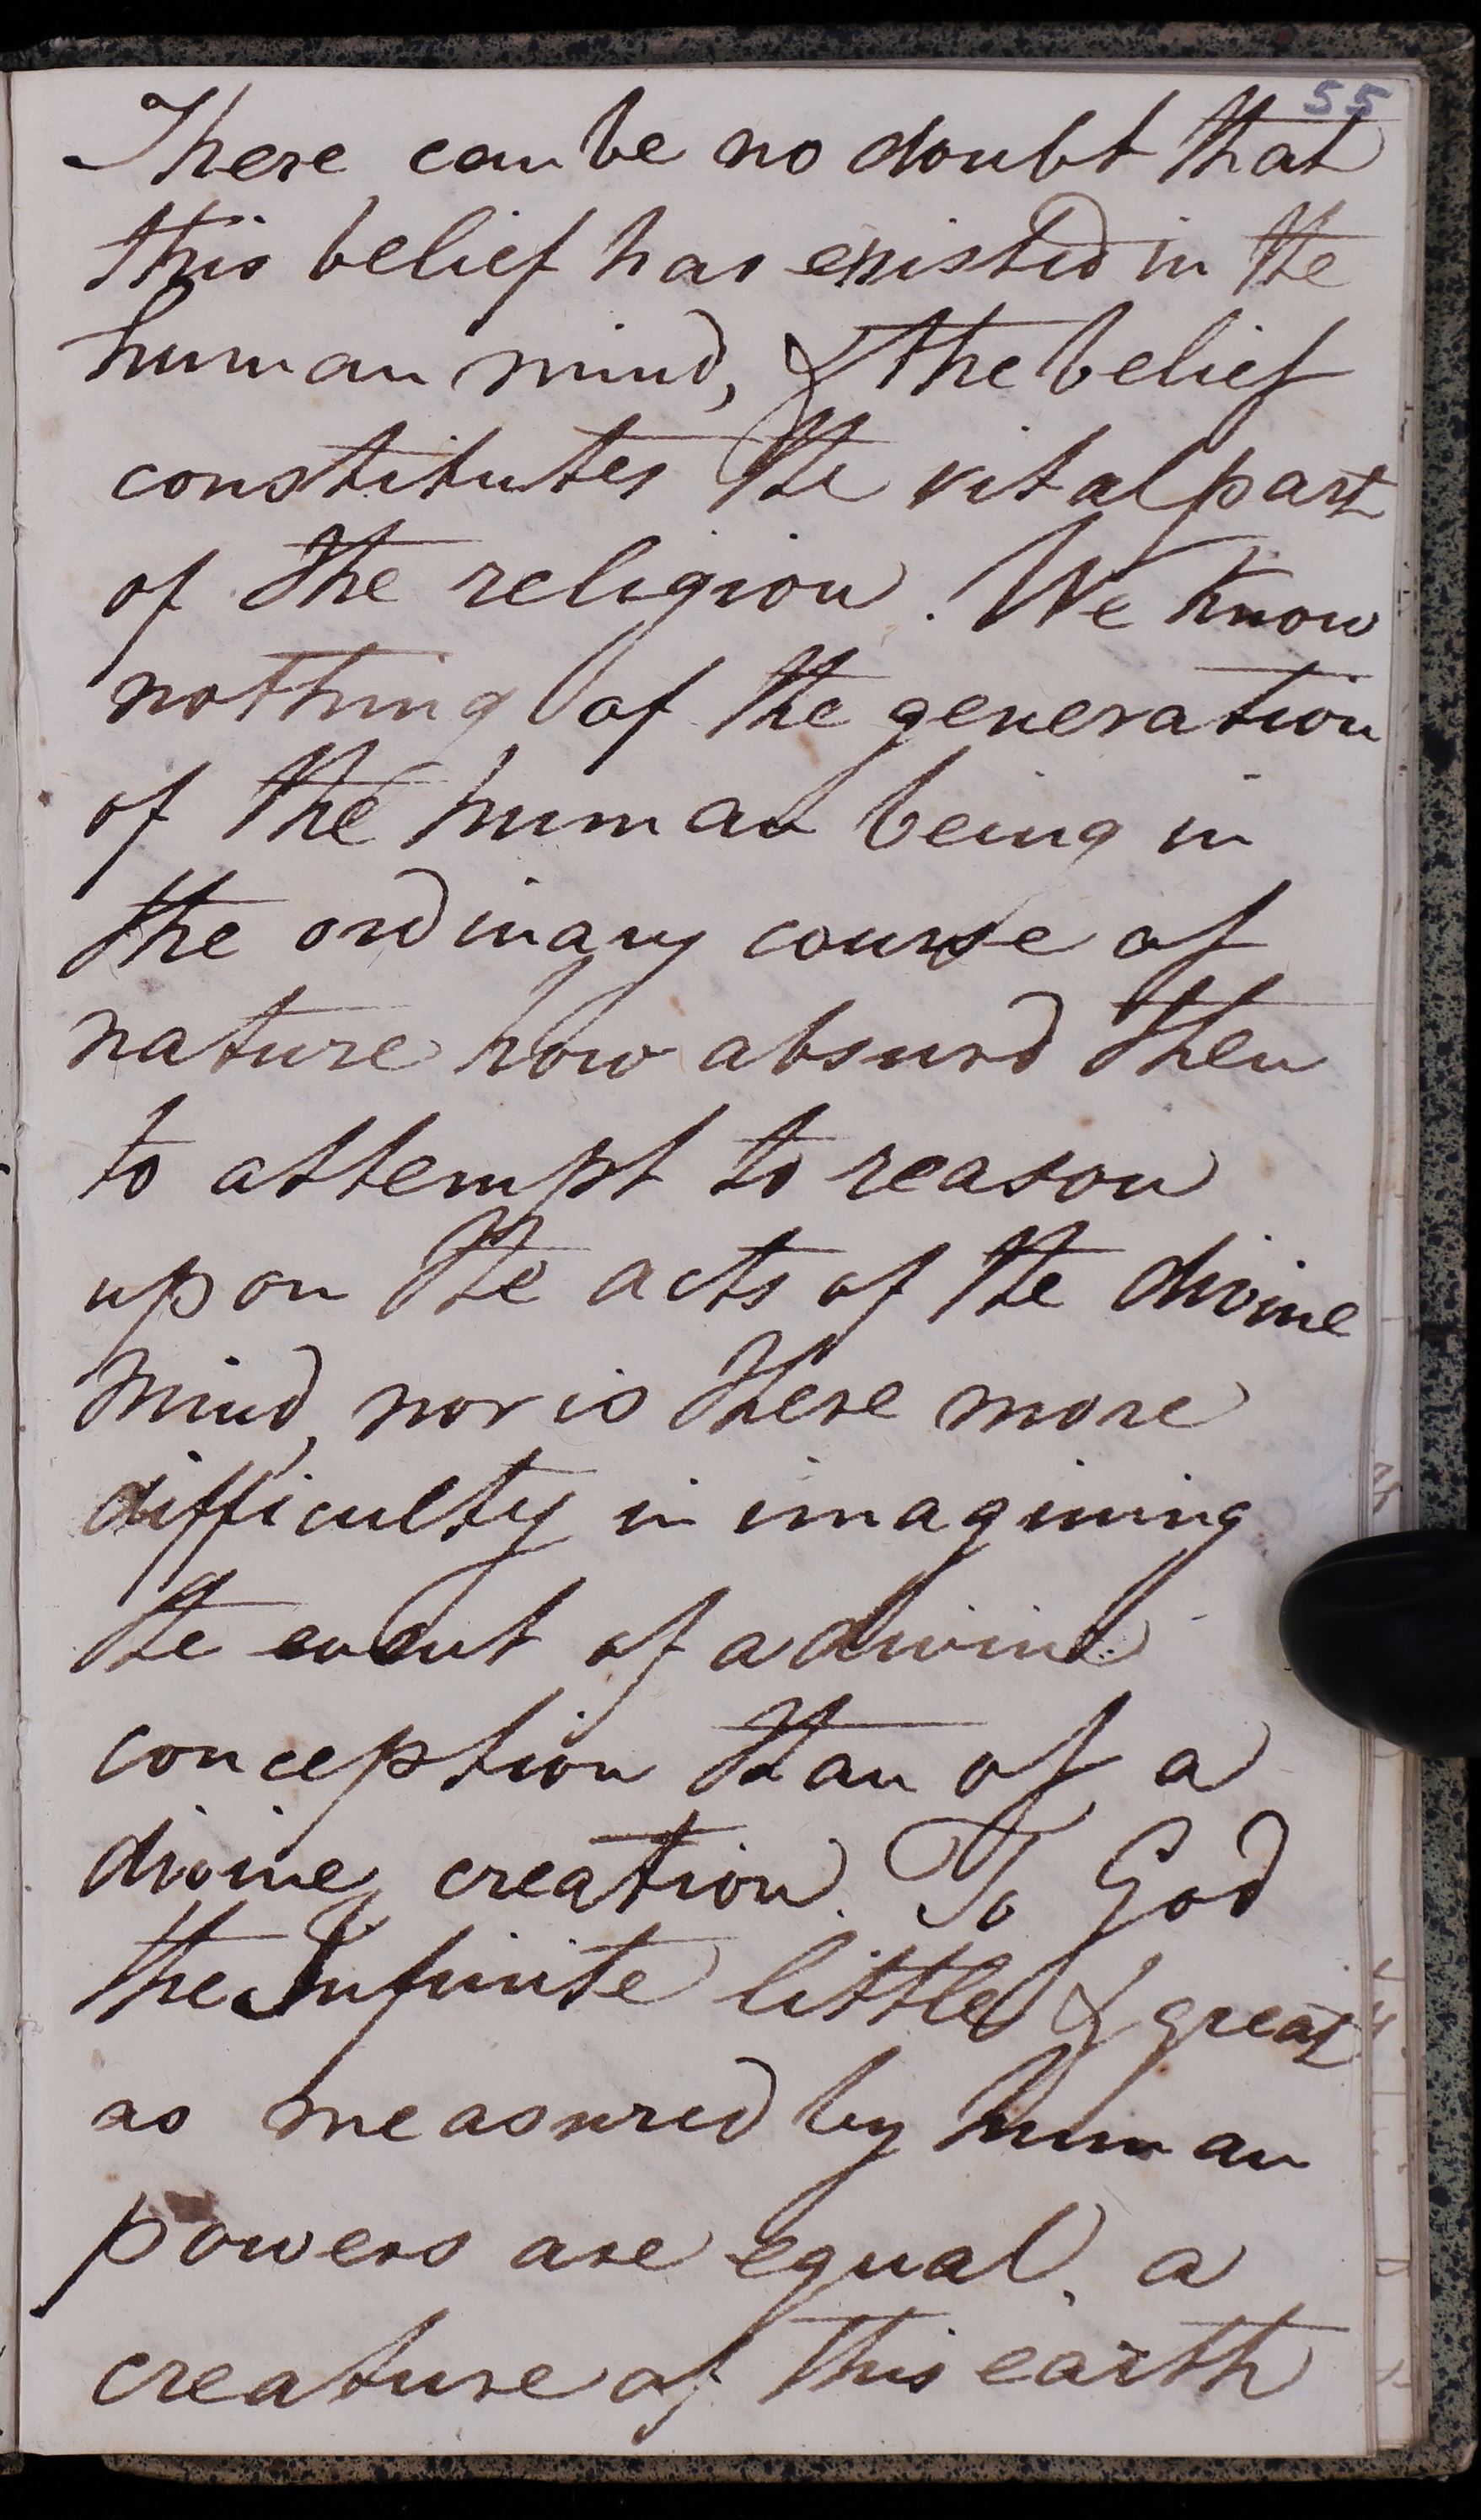 55
There can be no doubt that
this belief has existed in the
human mind, & the belief
constitutes the vital part
of the religion. We know
nothing of the generation
of the human being in
the ordinary course of
nature how absurd then
to attempt to reason
upon the acts of the divine
mind, nor is there more
difficulty in imagining
the event of a divine
conception than of a
divine creation. To God
the Infinite little & great
as measured by human
powers are equal. a
creature of this earth